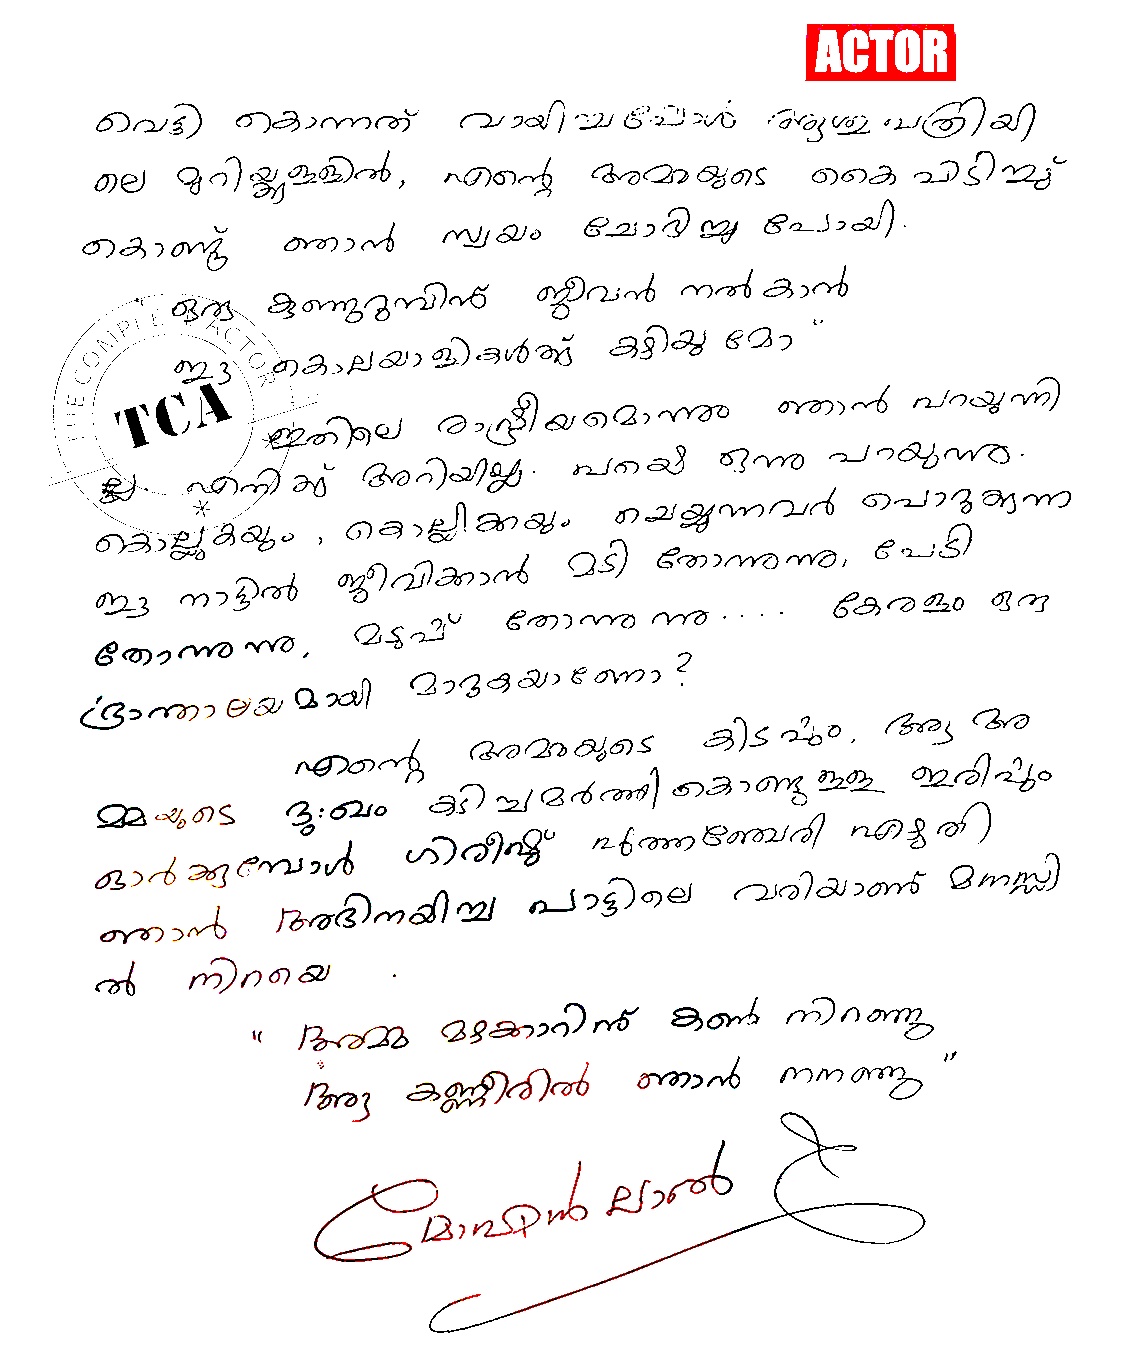 ACTOR
വെട്ടി കൊന്നത് വായിച്ചപ്പോൾ ആശുപത്രിയി
ലെ മുറിയ്ക്കുള്ളിൽ, എന്റെ അമ്മയുടെ കൈ പിടിച്ചു
കൊണ്ട് ഞാൻ സ്വയം ചോദിച്ചു പോയി.
" ഒരു കുഞ്ഞുറുമ്പിന് ജീവൻ നൽകാൻ
ഈ കൊലയാളികൾക്ക് കഴിയുമോ "
ഇതിലെ രാഷ്ട്രീയമൊന്നും ഞാൻ പറയുന്നി
ല്ല എനിക്ക് അറിയില്ല. പക്ഷെ ഒന്നു പറയുന്നു.
കൊല്ലുകയും, കൊല്ലിക്കുകയും ചെയ്യുന്നവർ പൊറുക്കുന്ന
ഈ നാട്ടിൽ ജീവിക്കാൻ മടി തോന്നുന്നു, പേടി
തോന്നുന്നു, മടുപ്പ് തോന്നുന്നു.... കേരളം ഒരു
ഭ്രാന്താലയമായി മാറുകയാണോ?
എന്റെ അമ്മയുടെ കിടപ്പും, ആ അ
മ്മയുടെ ദുഃഖം കടിച്ചമർത്തി കൊണ്ടുള്ള ഇരിപ്പും
ഓർക്കുമ്പോൾ ഗിരീഷ് പുത്തഞ്ചേരി എഴുതി
ഞാൻ അഭിനയിച്ച പാട്ടിലെ വരിയാണ് മനസ്സി
ൽ നിറയെ .
" അമ്മ മഴക്കാറിന് കൺ നിറഞ്ഞു
ആ കണ്ണീരിൽ ഞാൻ നനഞ്ഞു "
മോഹൻലാൽ
THE COMPLETE ACTOR
TCA